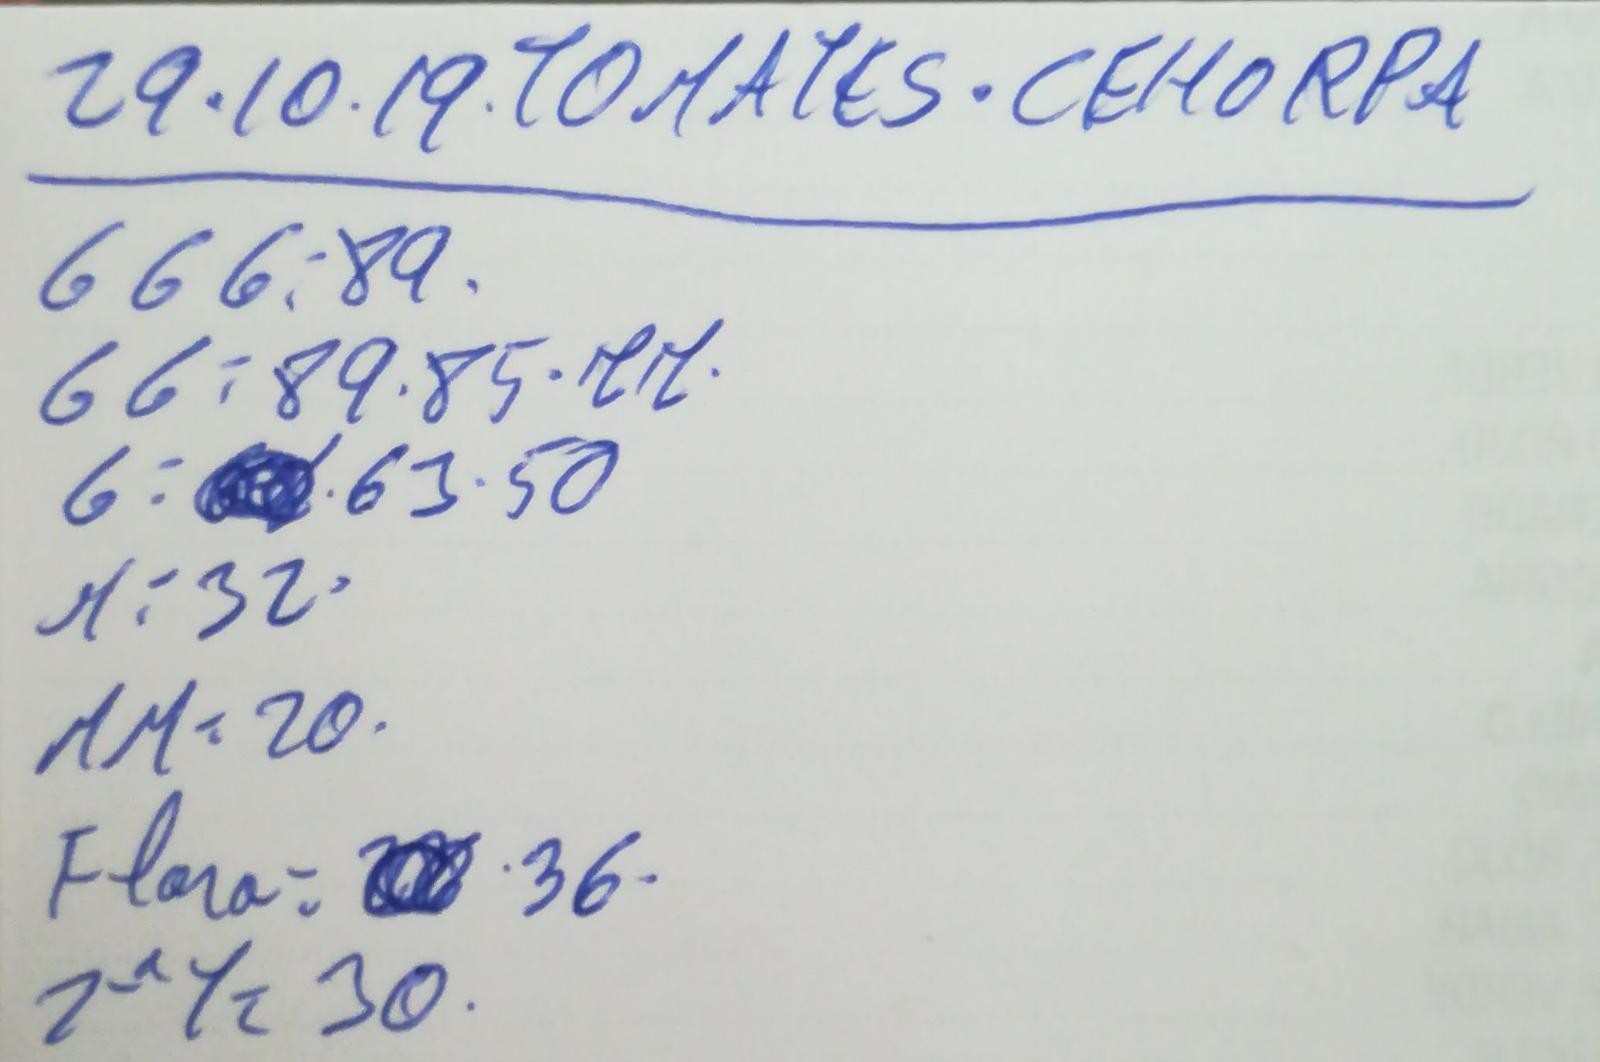 29.10.19. TOMATES. CEHORPA
GGG=89.
GG=89.85.MM.
G=.63.50
M=32.
MM=20.
Flora=.36.
2ª T=30.